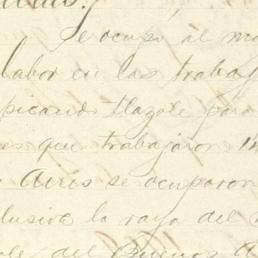 Se ocupó al ma
labor en las trabaj
picando tlazole para
es que trabajaron 14
Aires se ocuparon
clusive la raya del
del Buenos A